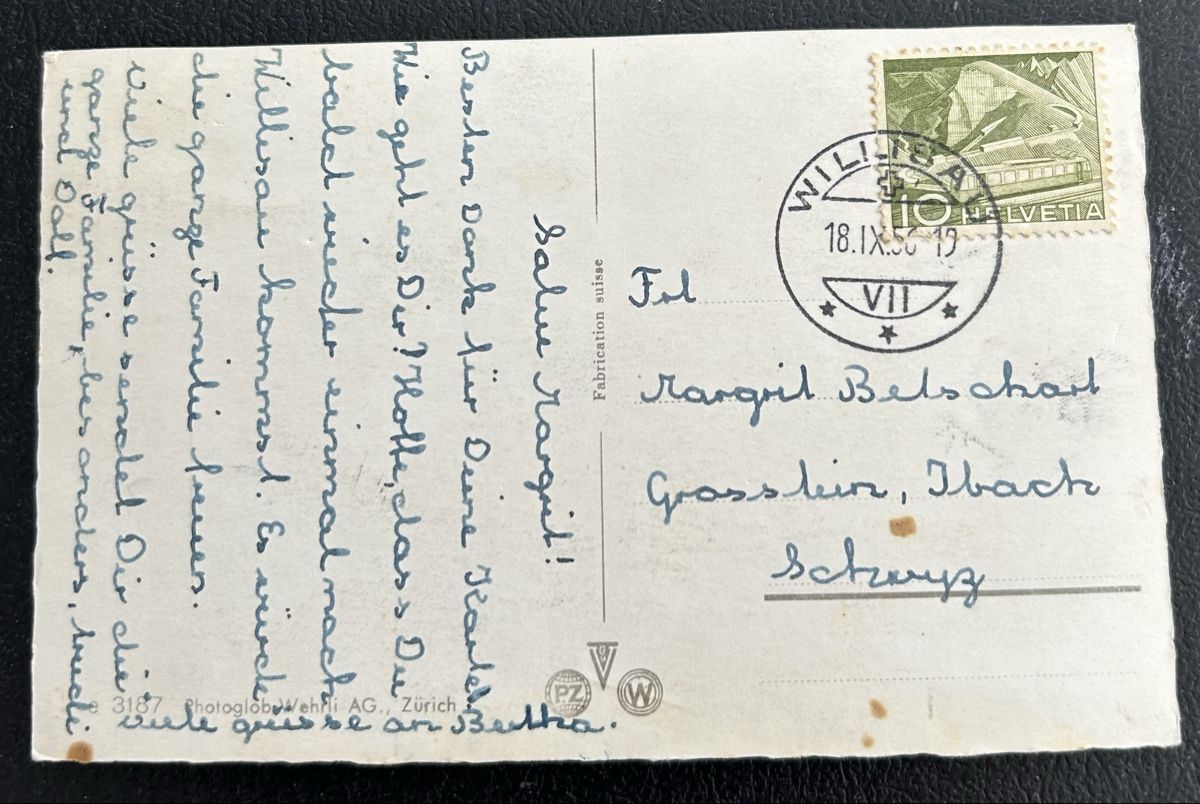 Salue Margrit!
Besten Dank für Deine Karte.
Wie geht es Dir? Hoffe, dass Du
bald wieder einmal nach
Willisau kommst. Es würde
die ganze Familie freuen.
Viele grüsse sendet Dir die
ganze Familie, besonders, Trudi
und Dölf.
viele grüsse an Bertha.
Fabrication suisse
3187 Photoglob-Wehrli AG., Zürich
PZ
W
10 HELVETIA
WILLISAU
18.IX.56-19
VII
Frl
Margrit Betschart
Grosstein, Ibach
Schwyz